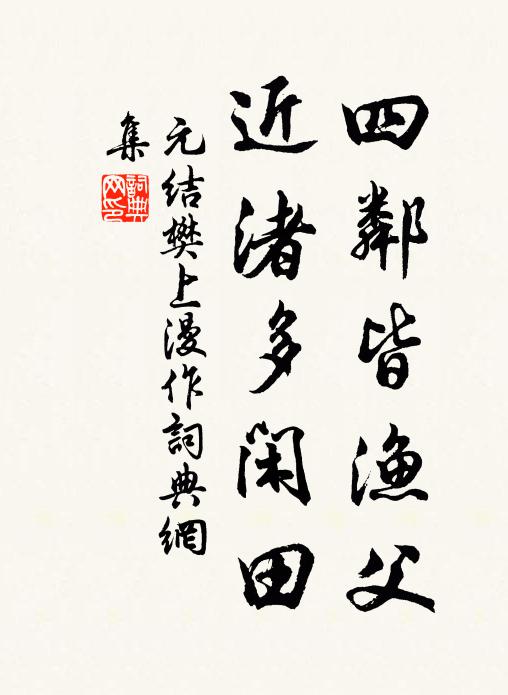 四鄰皆漁父
近渚多閑田
元结樊上漫作詞典網
集
詞典
网印